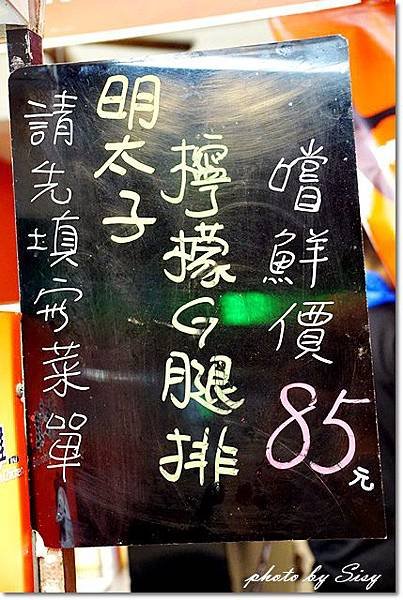 嚐鮮價85元
明太子
檸檬G腿排
請先填寫菜單
photo by Sisy